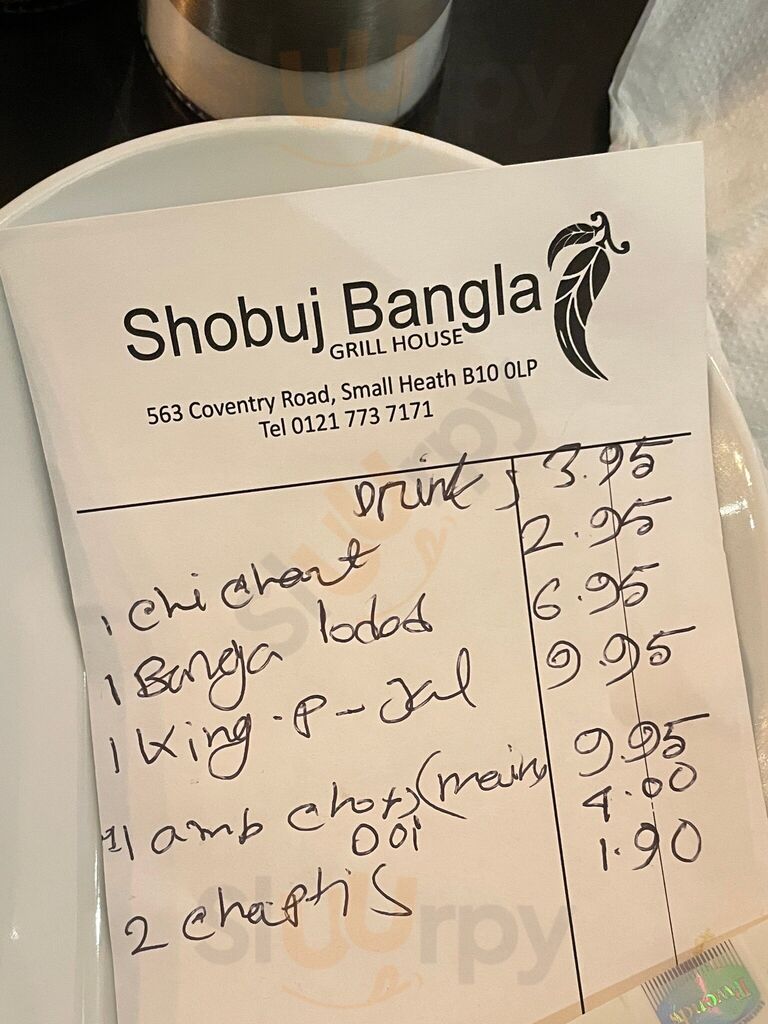 Shobuj Bangla
GRILL HOUSE
563 Coventry Road, Small Heath B10 0LP
Tel 0121 773 7171
Drinks 3.95
1 chi chart 2.95
1 Banga lodod 6.95
1 King-P-Jal 9.95
1 amb chops (main) 9.95
DOi 4.00
2 chaptis 1.90
Sluurpy
Sluurpy
Sluurpy